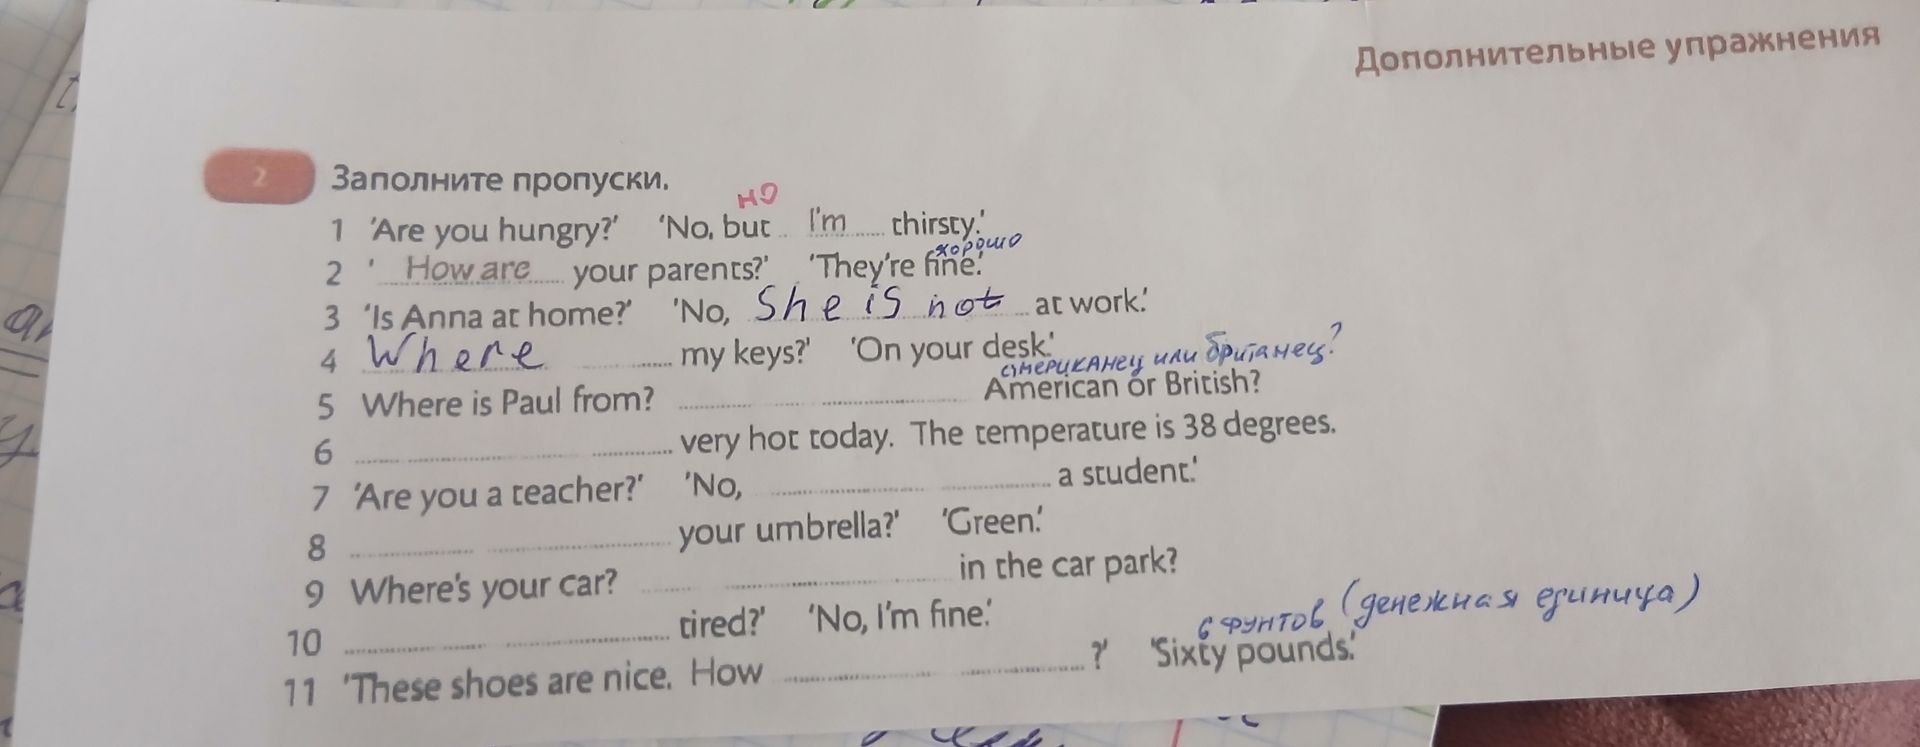 Дополнительные упражнения
2 Заполните пропуски.
но
1 'Are you hungry?' 'No, but I'm thirsty.'
хорошо
2 'How are your parents?' 'They're fine.'
3 'Is Anna at home?' 'No, She is not at work.'
4 Where my keys?' 'On your desk.'
американец или британец?
5 Where is Paul from? American or British?
6 very hot today. The temperature is 38 degrees.
7 'Are you a teacher?' 'No, a student.'
8 your umbrella?' 'Green.'
9 Where's your car? in the car park?
10 tired?' 'No, I'm fine.'
6 фунтов (денежная единица)
11 'These shoes are nice. How ?' 'Sixty pounds.'